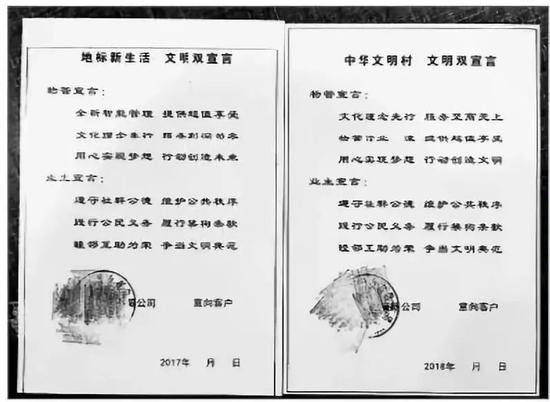 地标新生活 文明双宣言
物管宣言：
全新智能管理 提供超值享受
文化理念先行 服务
用心实现梦想 行动创造未来
业主宣言：
遵守社群公德 维护公共秩序
践行公民义务 履行契约条款
睦邻互助为荣 争当文明典范
公司 意向客户
2017年 月 日
中华文明村 文明双宣言
物管宣言：
文化理念先行 服务至高无上
物管行业 提供超值享受
用心实现梦想 行动创造文明
业主宣言：
遵守社群公德 维护公共秩序
践行公民义务 履行契约条款
睦邻互助为荣 争当文明典范
公司 意向客户
2018年 月 日